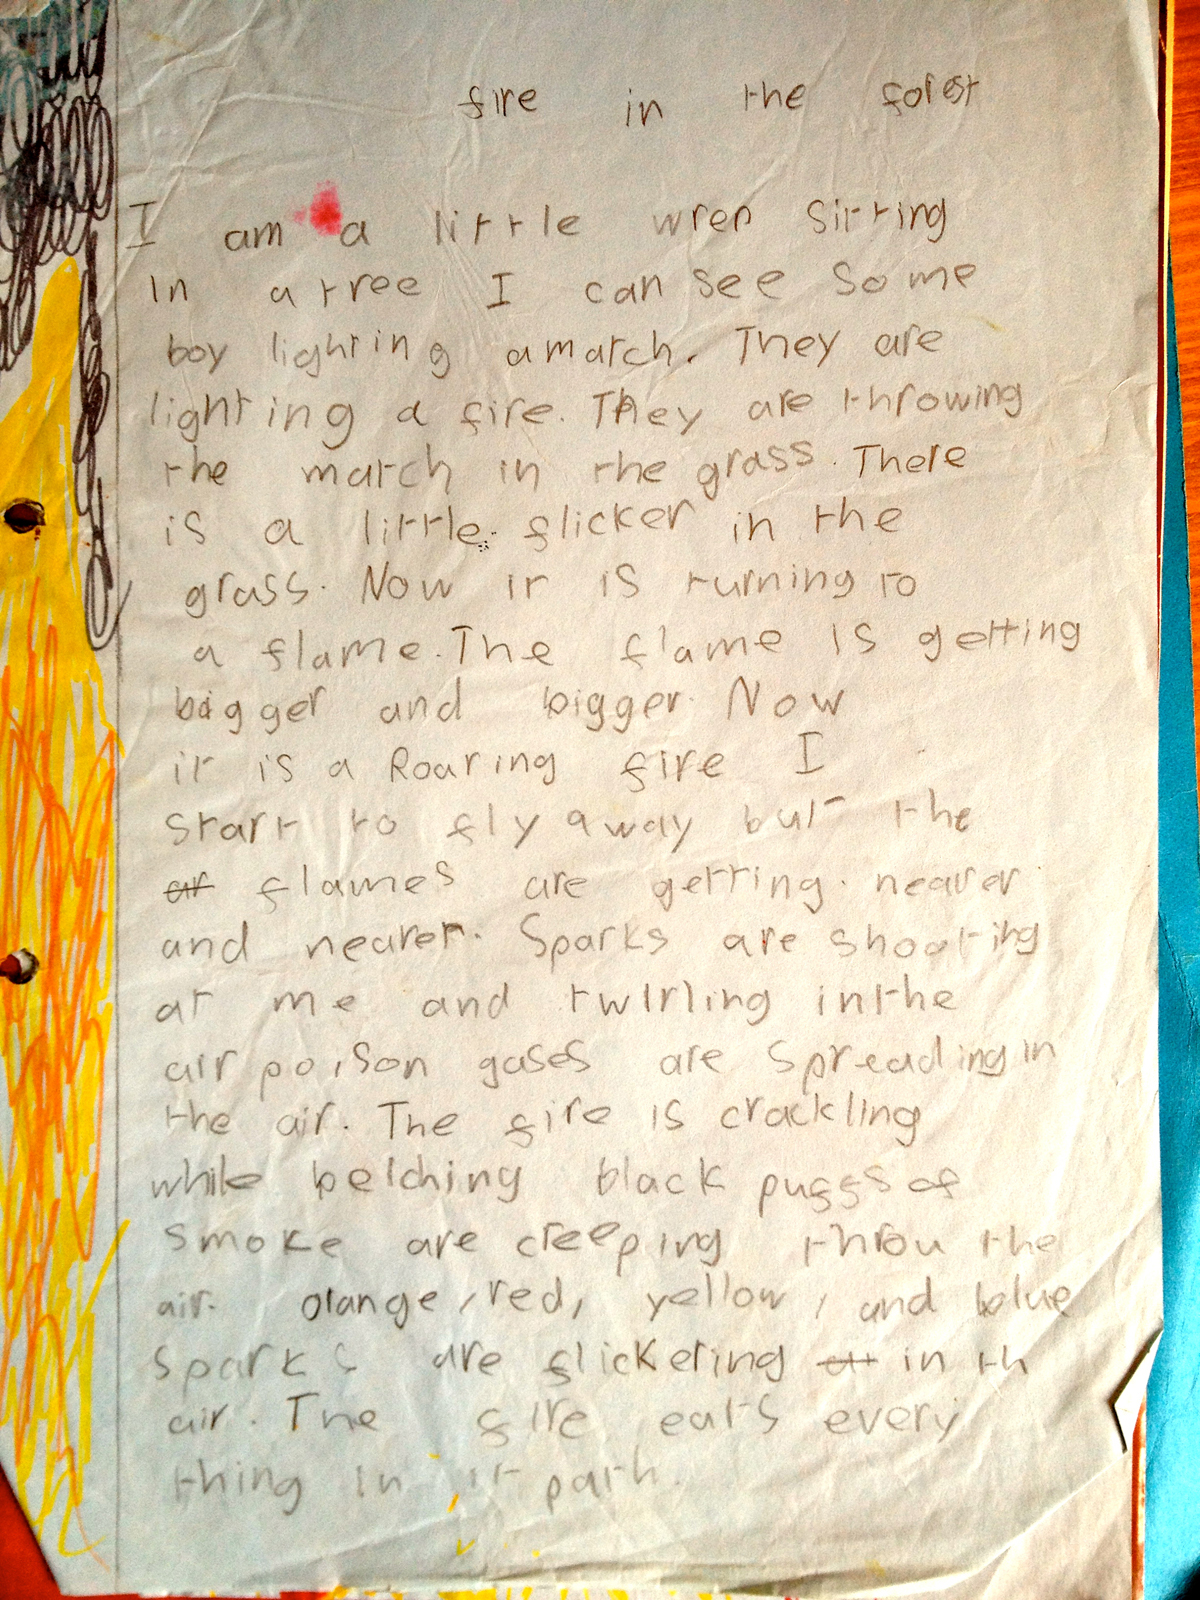 fire in the forest
I am a little wren sitting
in a tree I can see some
boy lighting a match. They are
lighting a fire. They are throwing
the match in the grass. There
is a little flicker in the
grass. Now it is turning to
a flame. The flame is getting
bigger and bigger. Now
it is a Roaring fire I
start to fly away but the
at flames are getting nearer
and nearer. Sparks are shooting
at me and twirling in the
air poison gases are spreading in
the air. The fire is crackling
while belching black puffs of
smoke are creeping throu the
air. orange, red, yellow, and blue
sparks are flickering at in th
air. The fire eats every
thing in it path.